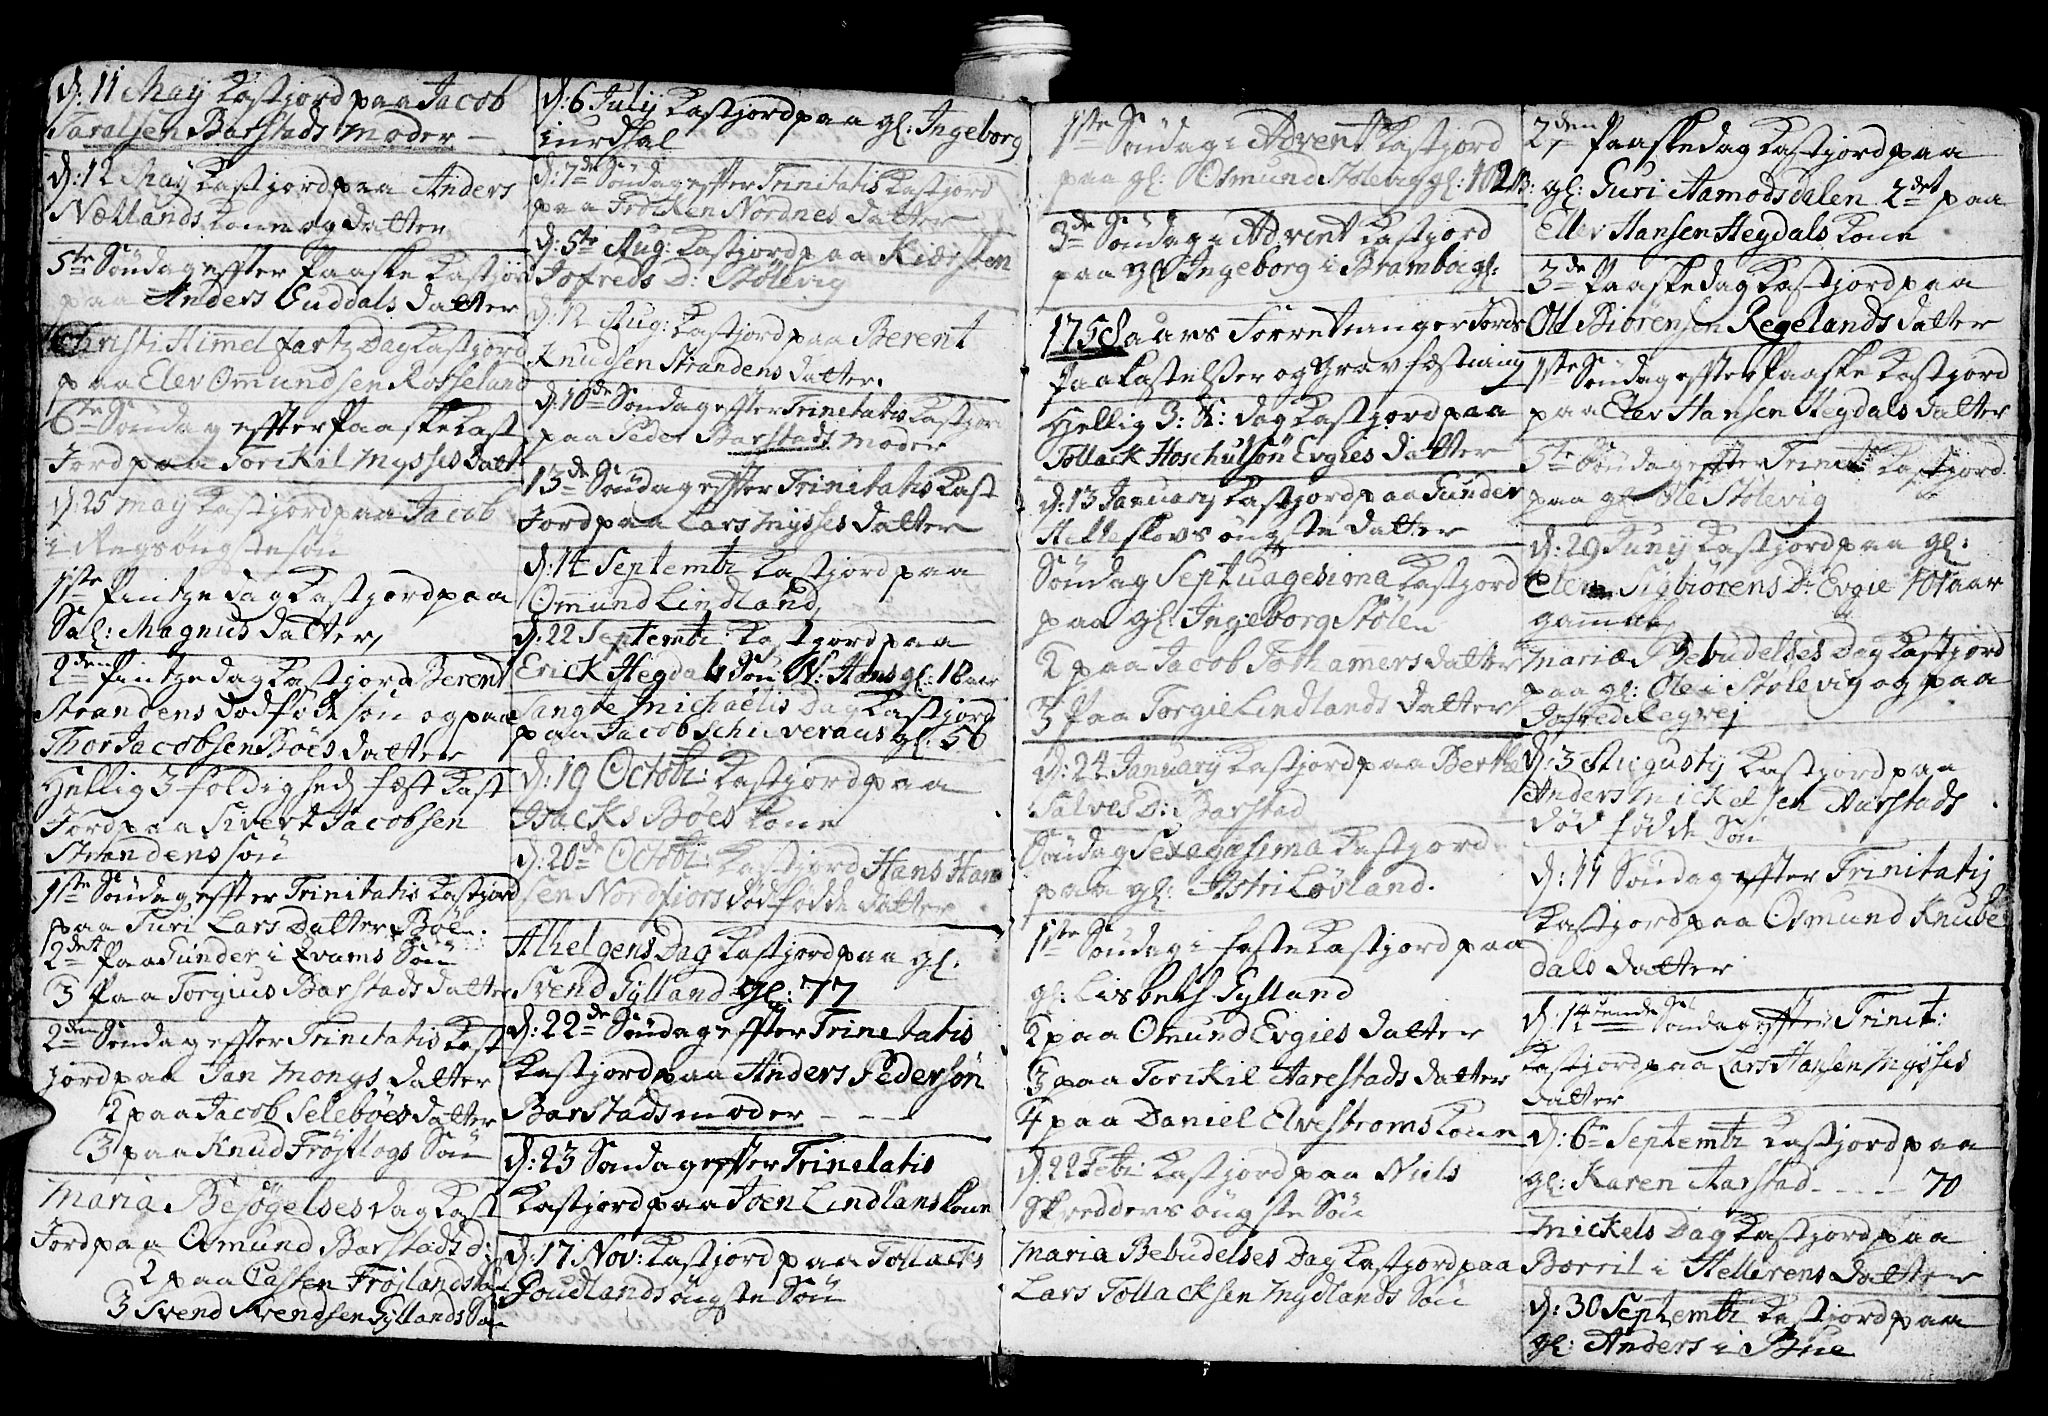 d: 11 May Kastjord paa Jacob
Taralsen Barstads Moder
d: 12 May Kastjord paa Anders
Nætlands Kone og datter
5te Söndag effter Paaske Kastjord
paa Anders Guddals datter
Christi Himmelfartz Dag Kastjord
paa Elev Omundsen Rosseland
6te Söndag effter Paaske Kast
Jord paa Torickil Mysses datt:
d: 25 may Kastjord paa Jacob
i Regs öngste sön
1ste Pintzedag Kastjord paa
Sal: Magnus datter,
2den Pintzedag Kastjord Berent
Strandens dödföde sön og paa
Thor Jacobsen Böes datter
Hellig 3foldighed fæst Kast
Jord paa Sivert Jacobsen
Strandens sön
1ste Söndag effter Trinitatis Kastjord
paa Turi Lars Datter Böe
2det paa Gunder i Qvams Sön
3 paa Torgius Barstads datter
2den Söndag effter Trinitatis Kast
jord paa Jan Mongs datter
2 paa Jacob Seleböes datter
3 paa Knud Fröjtlogs Sön
Maria Besøgelses dag Kast
Jord paa Osmund Barstads d:
2 paa Casten Fröjlands
3 Svend Svendsen Gyllands Sön
d: 6 Julij Kastjord paa gl: Ingeborg
i urdsal
d: 7de Söndag effter Trinitatis Kastjord
paa Frölken Nordnes datter
d: 5te Aug: Kastjord paa Kiersten
Jofreds D: Stölevig
d: 12 Aug: Kastjord paa Berent
Knudsen Strandens datter.
d: 10de Söndag effter Trinitatis Kastjord
paa Peder Barstads moder
13de Söndag effter Trinitatis Kast
Jord paa Lars Mysses datter
d: 14 Septembr Kastjord paa
Omund Lindland
d: 22 Septembr: Kastjord paa
Erick Hegdals Sön N: Hans gl: 18 aar
Sangte Michaëlis Dag Kastjord
paa Jacob Schiveraus gl: 56
d: 19 Octobr: Kastjord paa
Isacks Böes Kone
d: 20de Octobr: Kastjord Hans Han
sen Nordfiors dödfödde datter
Alhelgens Dag Kastjord paa gl.
Svend Gylland gl: 77
d: 22de Söndag effter Trinitatis
Kastjord paa Anders Pedersön
Barstads moder
d: 23 Söndag effter Trinitatis
Kastjord paa Joen Lindlans Kone
d: 17 Nov: Kastjord paa Tollacks
Goudlands öngste Sön
1ste Söndag i Advent Kastjord
paa gl: Osmund Stölevig gl: 102
3de Söndag i Advent Kastjord
paa gl Ingeborg i Brambo gl:
1758 aars Forretninger Jords
Paakastelser og Gravfæstning
Hellig 3: K: dag Kastjord paa
Tollack Hoschulsön Evgies datter
d: 13 January Kastjord paa Gunder
Helleskovs öngste datter
Söndag Septuagesima Kastjord
paa gl: Ingeborg Stölen
2 paa Jacob Tothamers datter
3 Paa Torgie Lindlands datter
d: 24 January Kastjord paa Berthe
Salves D: Barstad
Söndag Sexagæsima Kastjord
paa gl: Astri Lövland.
1ste Söndag i faste Kastjord paa
gl: Lisbeth Gylland
2 paa Omund Evgies datter
3 paa Torickil Aarestads datter
4 paa Daniel Elvestroms Kone
d: 22 Febr: Kastjord paa Niels
Skredders öngste Sön
Maria Bebudelses Dag Kastjord paa
Lars Tollacksen Mydlands Sön
2den Paaskedag Kastjord paa
gl: Guri Aamodsdalen 2det paa
Ellev Hansen Hegdals Kone
3de Paaskedag Kastjord paa
Ole Biörensen Regelands datter
1ste Söndag effter Paaske Kastjord
paa Elev Hansen Hegdals datter
5te Söndag effter Trinit: Kastjord
paa gl Ole Stölevig
d: 29 Juny Kastjord paa gl:
Elen Sigbiörens D: Evgie 101 aar
gammel
Mariæ Bebudelses Dag Kastjord
paa gl: Ole i Stölevig og paa
Jofred Regvej
d: 3 Augusty Kastjord paa
Anders Mickelsen Aarstads
död födde Sön
d: 11 Söndag effter Trinitatis
Kastjord paa Osmund Knube
dals datter
d: 14tende Söndag effter Trinit:
Kastjord paa Lars Hansen Mysses
datter
d: 6te Septembr Kastjord paa
gl: Karen Aarstad - - - - 70
Mickels Dag Kastjord paa
Borril i Hellerens datter
d: 30 Septembr Kastjord paa
gl: Anders i Bue